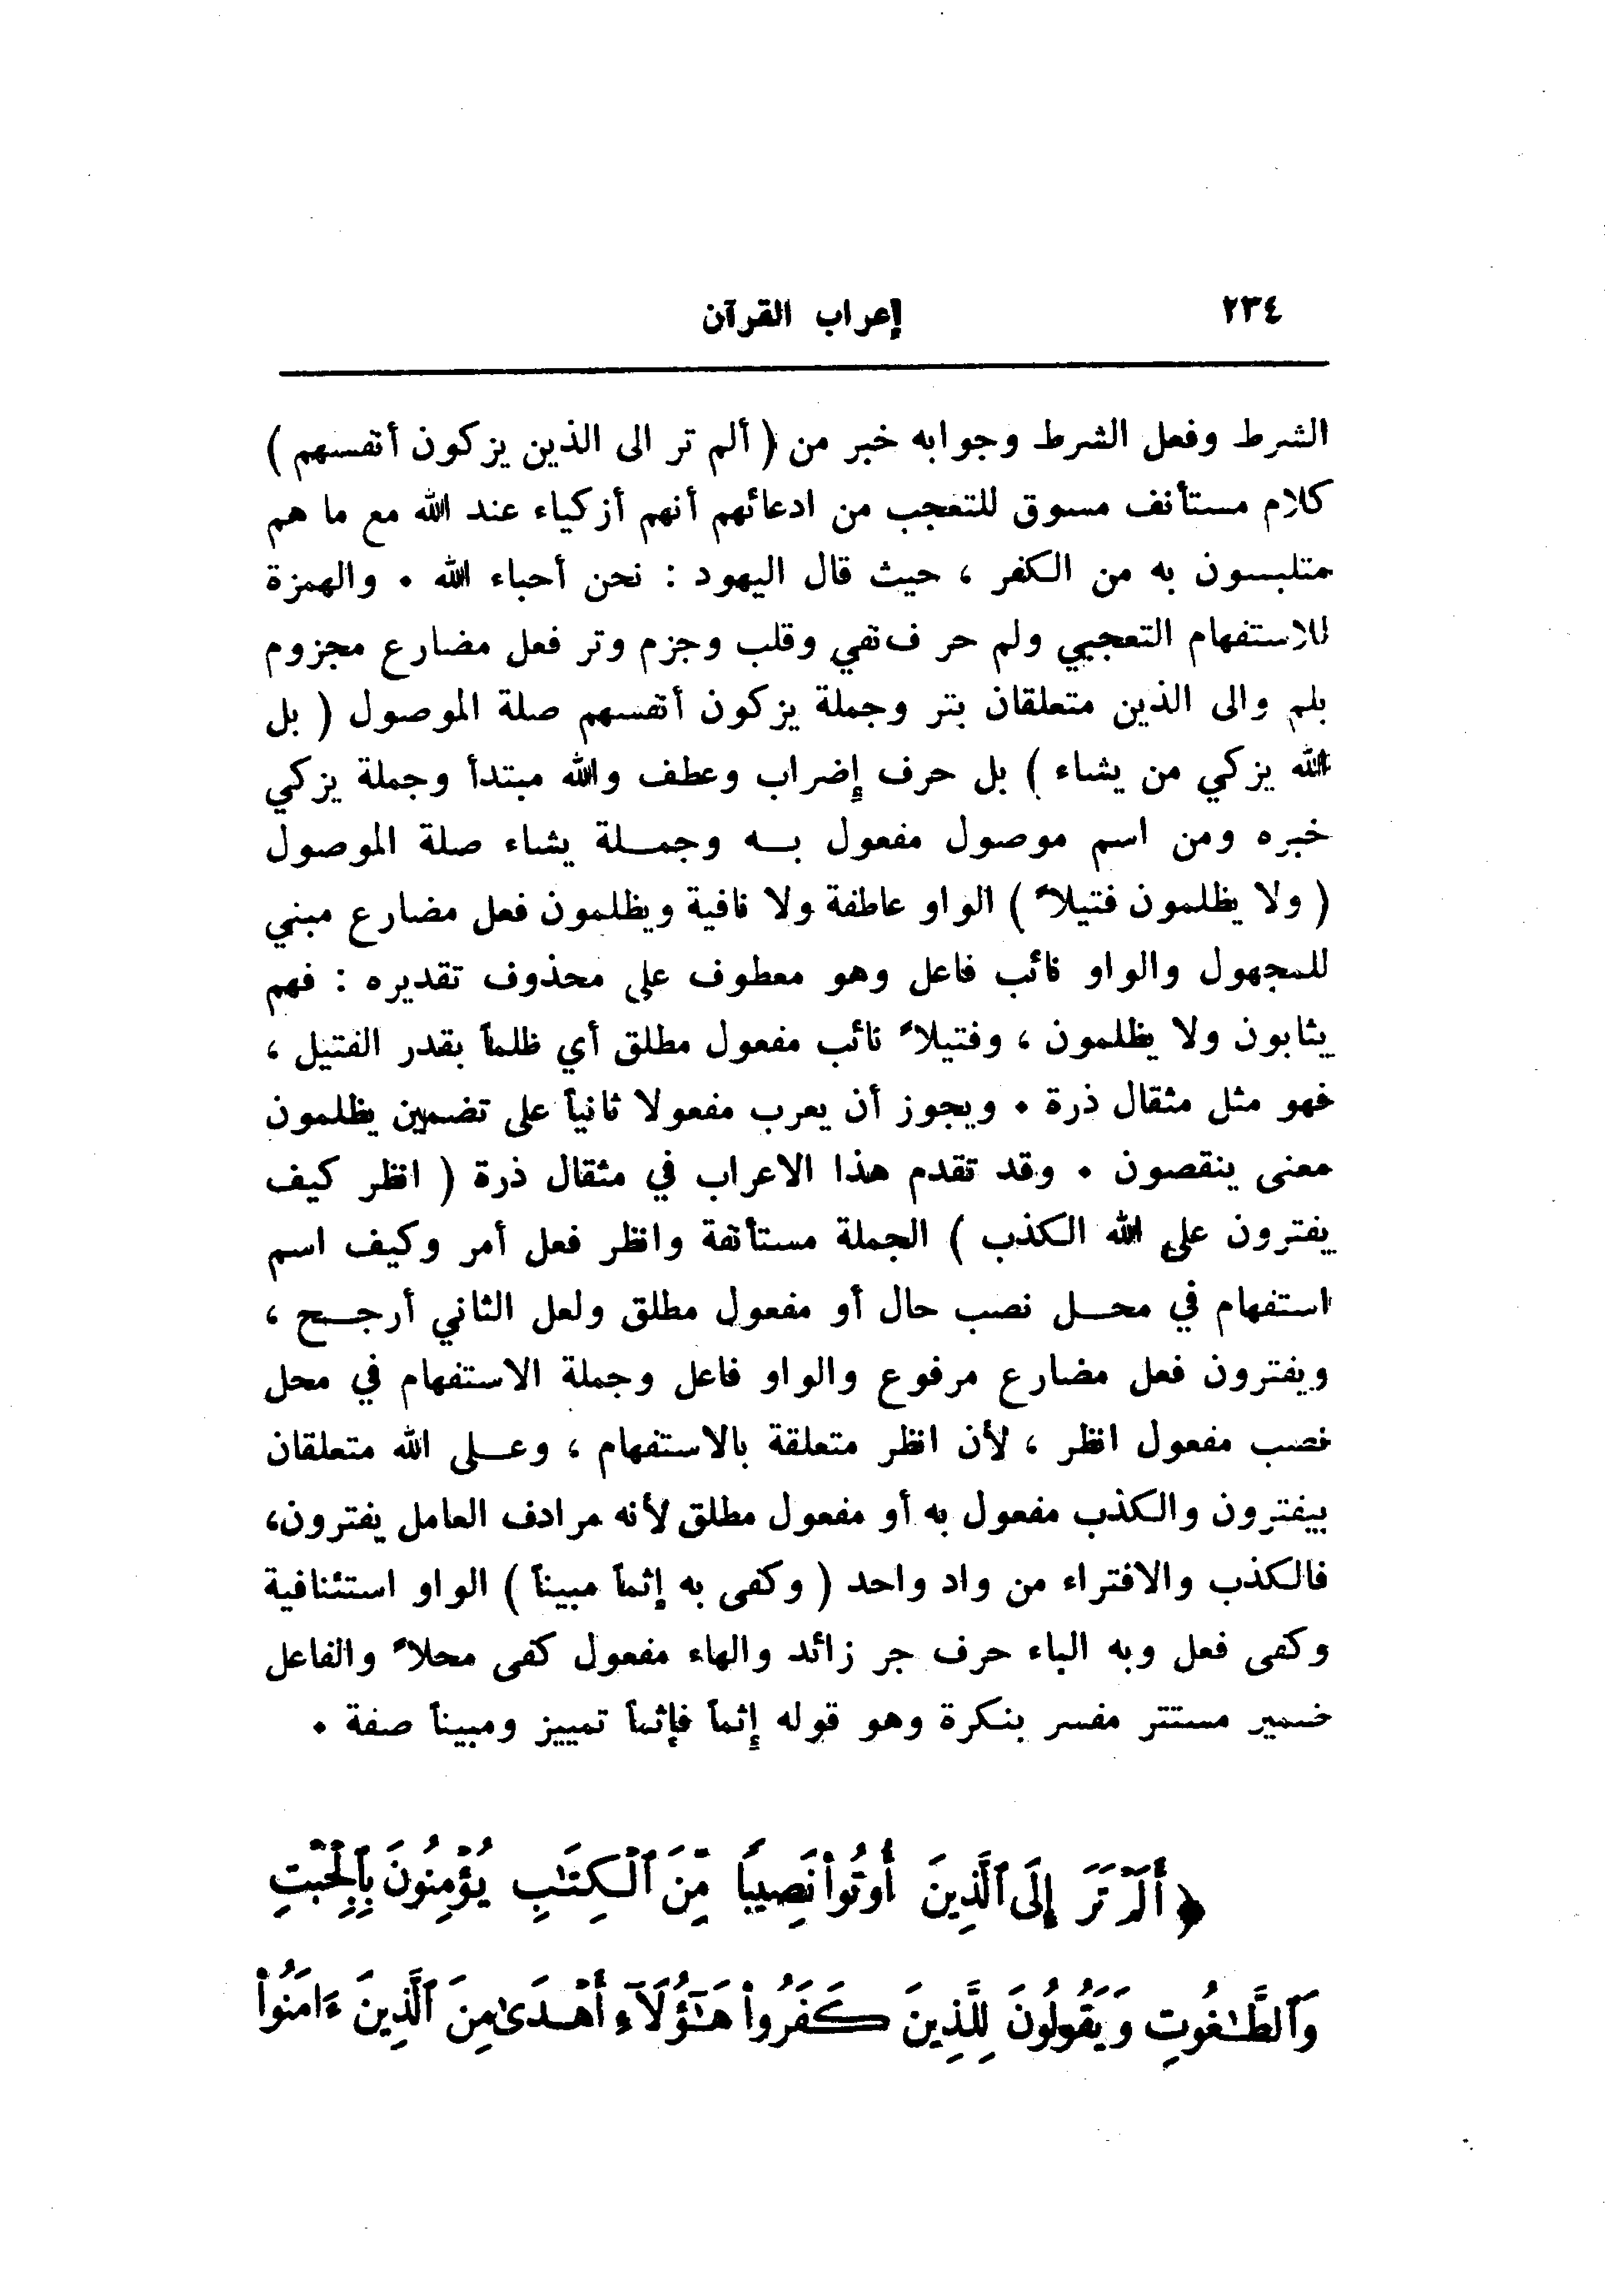 ٢٣٤ إعراب القرآن
الشرط وفعل الشرط وجوابه خبر من ( ألم تر الى الذين يزكون أنفسهم )
كلام مستأنف مسوق للتعجب من ادعائهم أنهم أزكياء عند الله مع ما هم
متلبسون به من الكفر ، حيث قال اليهود : نحن أحباء الله . والهمزة
للاستفهام التعجبي ولم حر ف نفي وقلب وجزم وتر فعل مضارع مجزوم
بلم والى الذين متعلقان بتر وجملة يزكون أنفسهم صلة الموصول ( بل
الله يزكي من يشاء ) بل حرف إضراب وعطف والله مبتدأ وجملة يزكي
خبره ومن اسم موصول مفعول بــه وجمــلة يشاء صلة الموصول
( ولا يظلمون فتيلاً ) الواو عاطفة ولا نافية ويظلمون فعل مضارع مبني
للمجهول والواو نائب فاعل وهو معطوف على محذوف تقديره : فهم
يثابون ولا يظلمون ، وفتيلاً نائب مفعول مطلق أي ظلماً بقدر الفتيل ،
فهو مثل مثقال ذرة . ويجوز أن يعرب مفعولا ثانياً على تضمين يظلمون
معنى ينقصون . وقد تقدم هذا الاعراب في مثقال ذرة ( انظر كيف
يفترون على الله الكذب ) الجملة مستأنفة وانظر فعل أمر وكيف اسم
استفهام في محــل نصب حال أو مفعول مطلق ولعل الثاني أرجــح ،
ويفترون فعل مضارع مرفوع والواو فاعل وجملة الاستفهام في محل
نصب مفعول انظر ، لأن انظر متعلقة بالاستفهام ، وعــلى الله متعلقان
بيفترون والكذب مفعول به أو مفعول مطلق لأنه مرادف العامل يفترون،
فالكذب والافتراء من واد واحد ( وكفى به إثماً مبيناً ) الواو استئنافية
وكفى فعل وبه الباء حرف جر زائد والهاء مفعول كفى محلاً والفاعل
ضمير مستتر مفسر بنكرة وهو قوله إثماً فإثماً تمييز ومبيناً صفة .
﴿ أَلَمْ تَرَ إِلَى ٱلَّذِينَ أُوتُوا۟ نَصِيبًا مِّنَ ٱلْكِتَـٰبِ يُؤْمِنُونَ بِٱلْجِبْتِ
وَٱلطَّـٰغُوتِ وَيَقُولُونَ لِلَّذِينَ كَفَرُوا۟ هَـٰٓؤُلَآءِ أَهْدَىٰ مِنَ ٱلَّذِينَ ءَامَنُوا۟